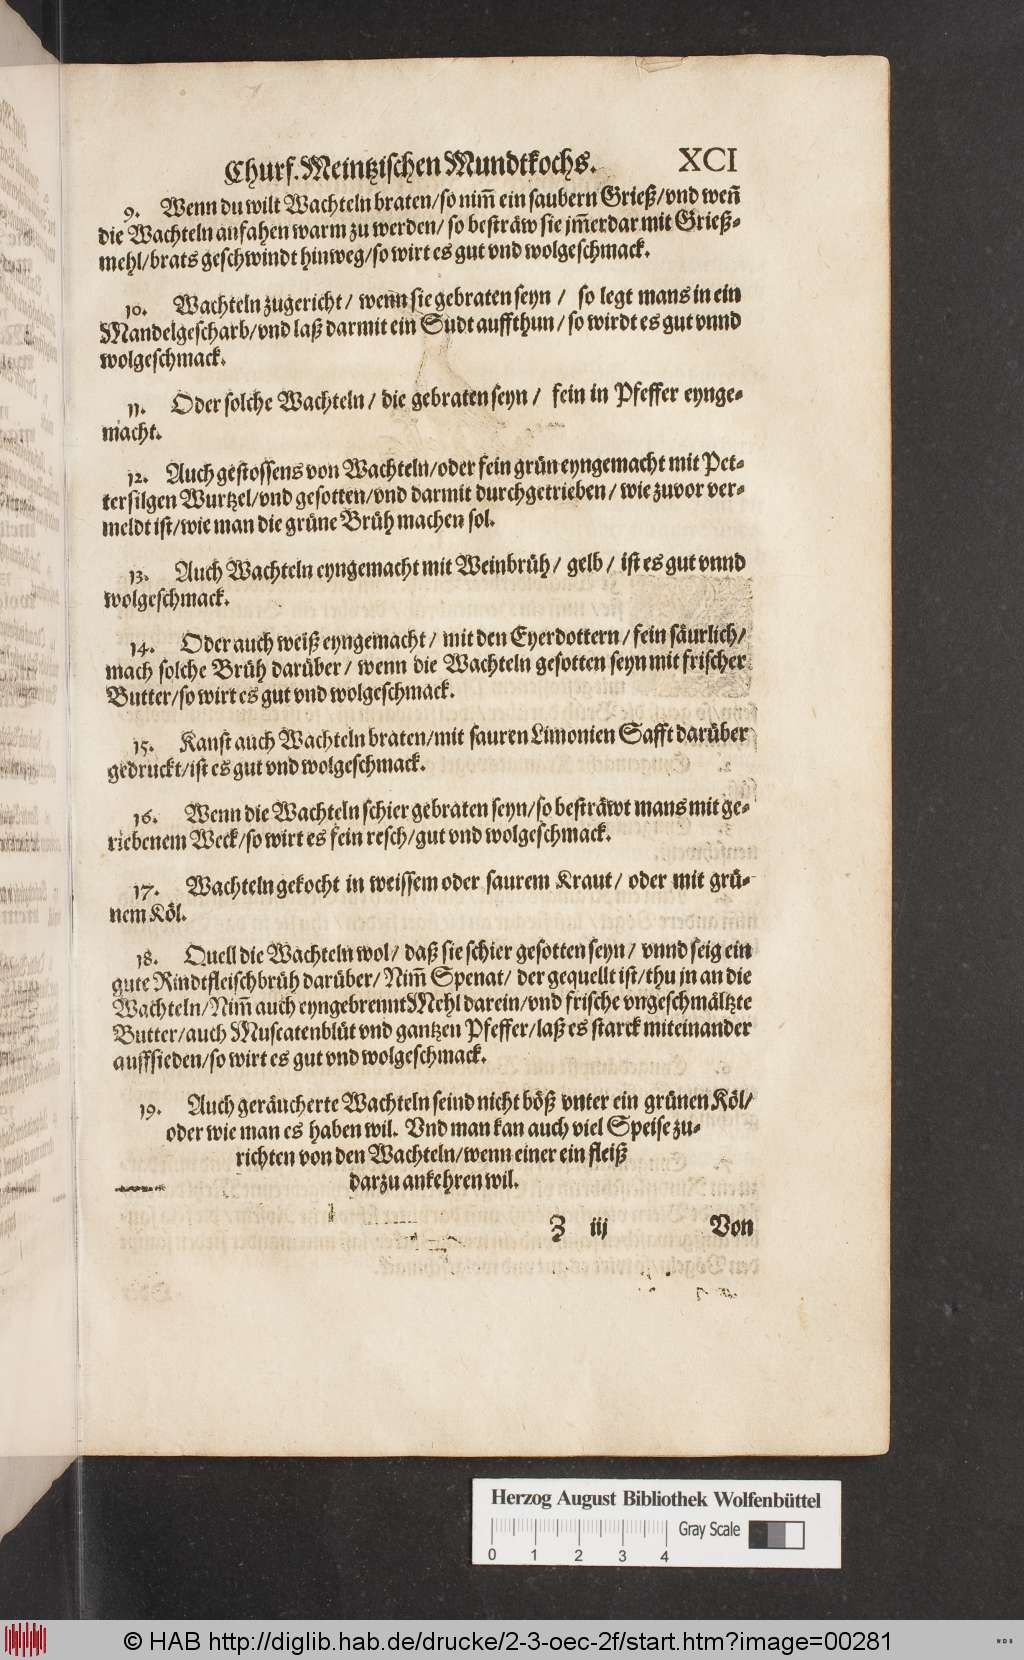 Churf. Meintzischen Mundtkochs. XCI
9. Wenn du wilt Wachteln braten/so nim̃ ein saubern Grieß/vnd weñ
die Wachteln anfahen warm zu werden/ so besträw sie jm̃erdar mit Grieß-
mehl/brats geschwindt hinweg/so wirt es gut vnd wolgeschmack.
10. Wachteln zugericht/ wenn sie gebraten seyn/ so legt mans in ein
Mandelgescharb/vnd laß darmit ein Sudt auffthun/so wirdt es gut vnnd
wolgeschmack.
11. Oder solche Wachteln/ die gebraten seyn/ fein in Pfeffer eynge-
macht.
12. Auch gestossens von Wachteln/oder fein grün eyngemacht mit Pet-
tersilgen Wurtzel/vnd gesotten/vnd darmit durchgetrieben/ wie zuvor ver-
meldt ist/wie man die grüne Brüh machen sol.
13. Auch Wachteln eyngemacht mit Weinbrüh/ gelb/ ist es gut vnnd
wolgeschmack.
14. Oder auch weiß eyngemacht/ mit den Eyerdottern/fein säurlich/
mach solche Brüh darüber/ wenn die Wachteln gesotten seyn mit frischer
Butter/so wirt es gut vnd wolgeschmack.
15. Kanst auch Wachteln braten/mit sauren Limonien Safft darüber
gedruckt/ist es gut vnd wolgeschmack.
16. Wenn die Wachteln schier gebraten seyn/so besträwt mans mit ge-
riebenem Weck/so wirt es fein resch/gut vnd wolgeschmack.
17. Wachteln gekocht in weissem oder saurem Kraut/ oder mit grü-
nem Köl.
18. Quell die Wachteln wol/ daß sie schier gesotten seyn/ vnnd seig ein
gute Rindtfleischbrüh darüber/Nim̃ Spenat/ der gequellt ist/thu jn an die
Wachteln/Nim̃ auch eyngebrennt Mehl darein/vnd frische vngeschmältzte
Butter/auch Muscatenblüt vnd gantzen Pfeffer/laß es starck miteinander
auffsieden/so wirt es gut vnd wolgeschmack.
19. Auch geräucherte Wachteln seind nicht böß vnter ein grünen Köl/
oder wie man es haben wil. Vnd man kan auch viel Speise zu-
richten von den Wachteln/wenn einer ein fleiß
darzu ankehren wil.
Z iij Von
Herzog August Bibliothek Wolfenbüttel
Gray Scale
0 1 2 3 4
© HAB http://diglib.hab.de/drucke/2-3-oec-2f/start.htm?image=00281